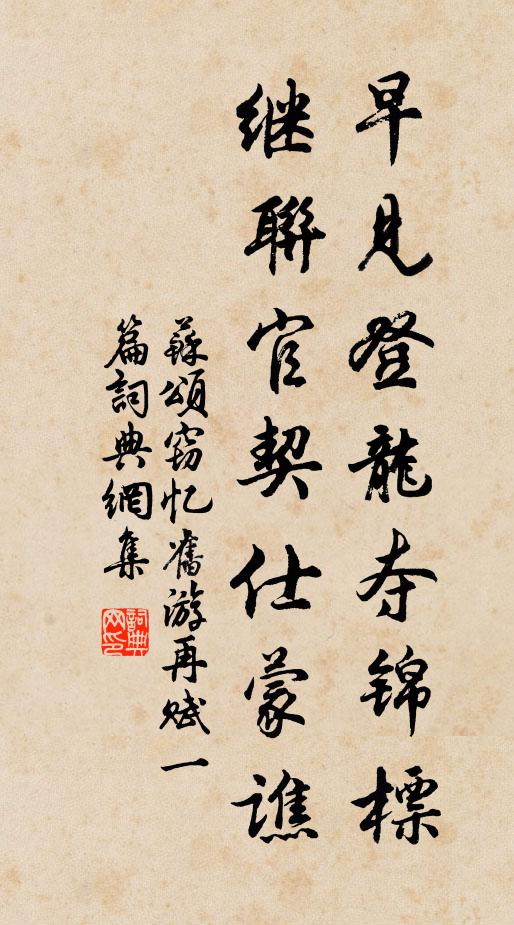 早見登龍夺錦標
继聯官契仕蒙譙
蘇頌窃忆舊游再赋一
篇詞典網集
詞典网印